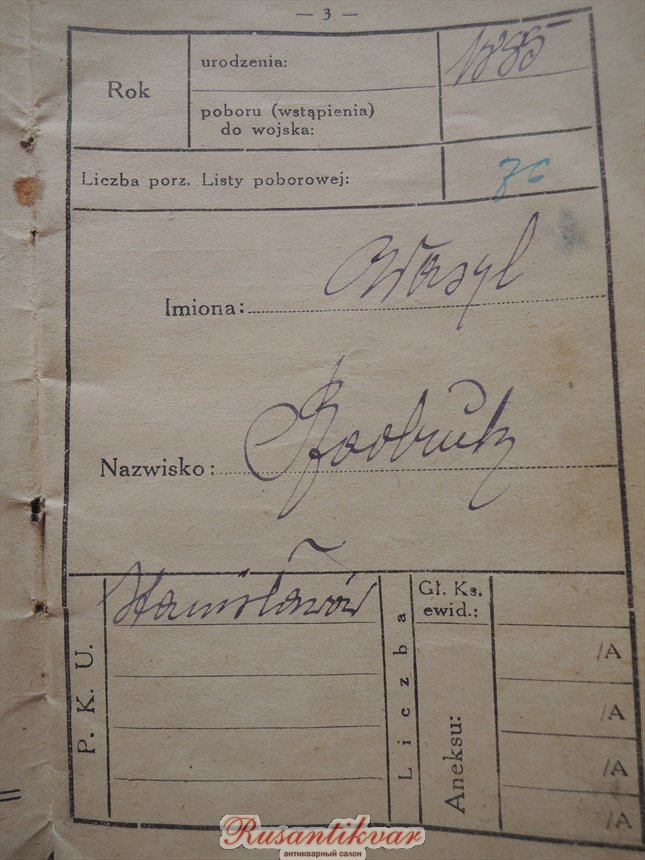 — 3 —
Rok
urodzenia: 1885
poboru (wstąpienia)
do wojska:
Liczba porz. Listy poborowej:
Imiona: Wasyl
Nazwisko:
P. K. U.
Stanisławów
Liczba
Gł. Ks.
ewid.:
Aneksu:
/A
/A
/A
/A
Rusantikvar
антикварный салон